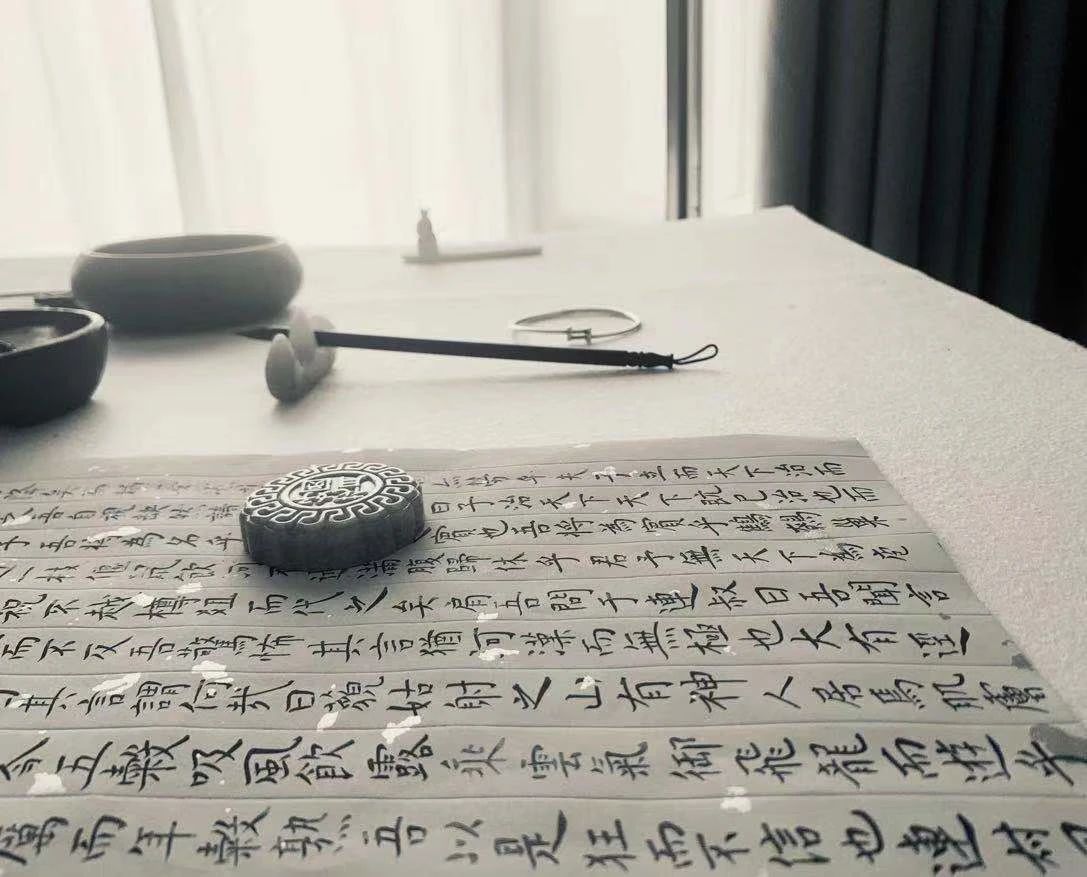 乎夫子立而天下治而
吾自視缺然請 曰子治天下天下既已治也而
吾將為名乎 賓也吾將為賓乎鷦鷯巢
一枝偃鼠飲河不過滿腹歸休乎君予無天下為庖
祝不越樽俎而代之矣肩吾問于連叔曰吾聞言
而不反吾驚怖其言猶河漢而無極也大有逕
其言謂何哉曰藐姑射之山有神人居焉肌膚
食五穀吸風飲露乘雲氣御飛龍而遊乎
癘而年穀熟吾以是狂而不信也連叔曰